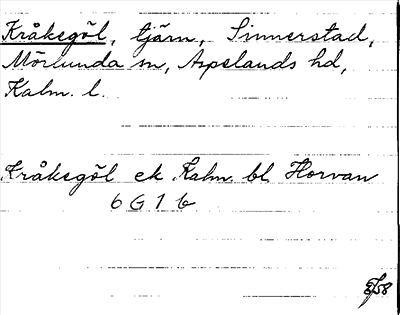 Kråkegöl, tjärn, Sinnerstad,
Mörlunda sn, Aspelands hd,
Kalm. l.
Kråkegöl ek Kalm bl Horvan
6 G 1 b